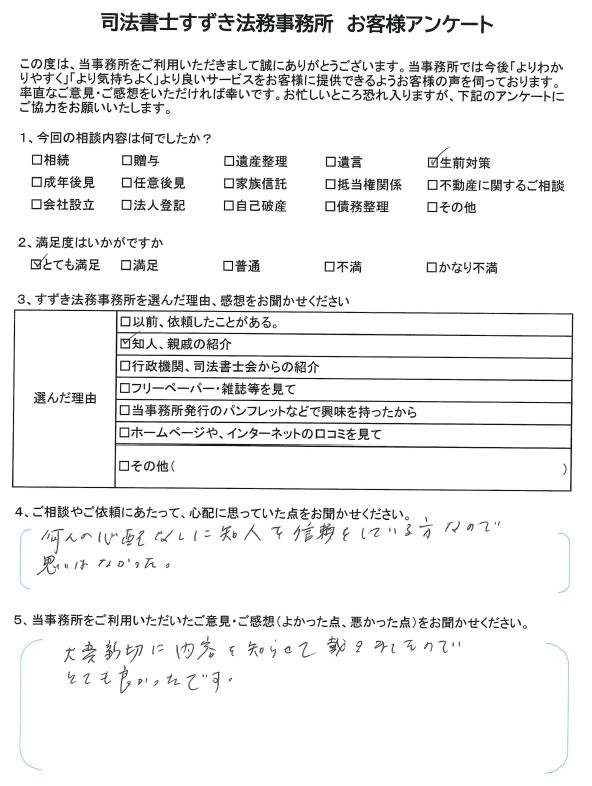 司法書士すずき法務事務所 お客様アンケート
この度は、当事務所をご利用いただきまして誠にありがとうございます。当事務所では今後「よりわか
りやすく」「より気持ちよく」より良いサービスをお客様に提供できるようお客様の声を伺っております。
率直なご意見・ご感想をいただければ幸いです。お忙しいところ恐れ入りますが、下記のアンケートに
ご協力をお願いいたします。
1、今回の相談内容は何でしたか?
□相続 □贈与 □遺産整理 □遺言 ☑生前対策
□成年後見 □任意後見 □家族信託 □抵当権関係 □不動産に関するご相談
□会社設立 □法人登記 □自己破産 □債務整理 □その他
2、満足度はいかがですか
☑とても満足 □満足 □普通 □不満 □かなり不満
3、すずき法務事務所を選んだ理由、感想をお聞かせください
選んだ理由
□以前、依頼したことがある。
☑知人、親戚の紹介
□行政機関、司法書士会からの紹介
□フリーペーパー・雑誌等を見て
□当事務所発行のパンフレットなどで興味を持ったから
□ホームページや、インターネットの口コミを見て
□その他( )
4、ご相談やご依頼にあたって、心配に思っていた点をお聞かせください。
何んの心配なしに知人を信頼をしている方なので
思いはなかった。
5、当事務所をご利用いただいたご意見・ご感想(よかった点、悪かった点)をお聞かせください。
大変親切に内容を知らせて戴きましたので
とても良かったです。